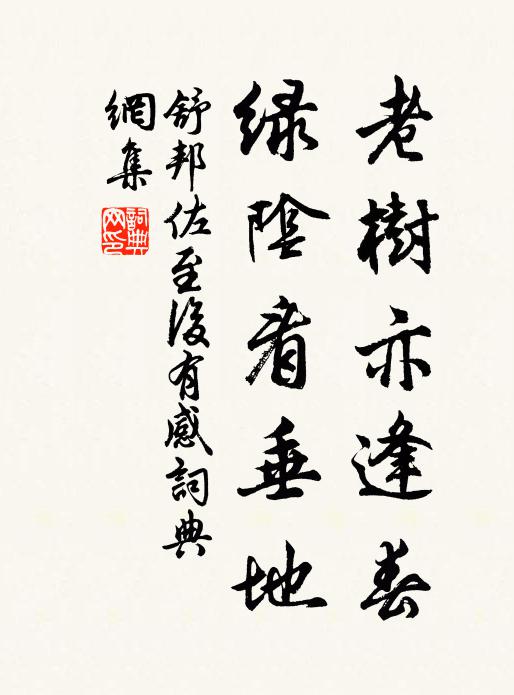 老樹亦逢春
緑陰看垂地
舒邦佐至後有感詞典
網集
詞典網印